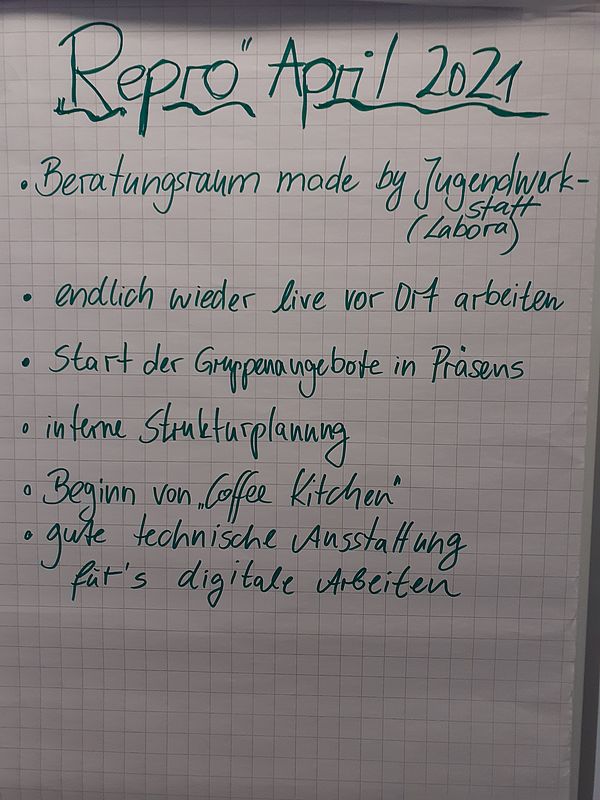 „Repro" April 2021
• Beratungsraum made by Jugendwerk-
statt
(Labora)
• endlich wieder live vor Ort arbeiten
• Start der Gruppenangebote in Präsens
• interne Strukturplanung
• Beginn von „Coffee Kitchen"
• gute technische Ausstattung
für's digitale Arbeiten